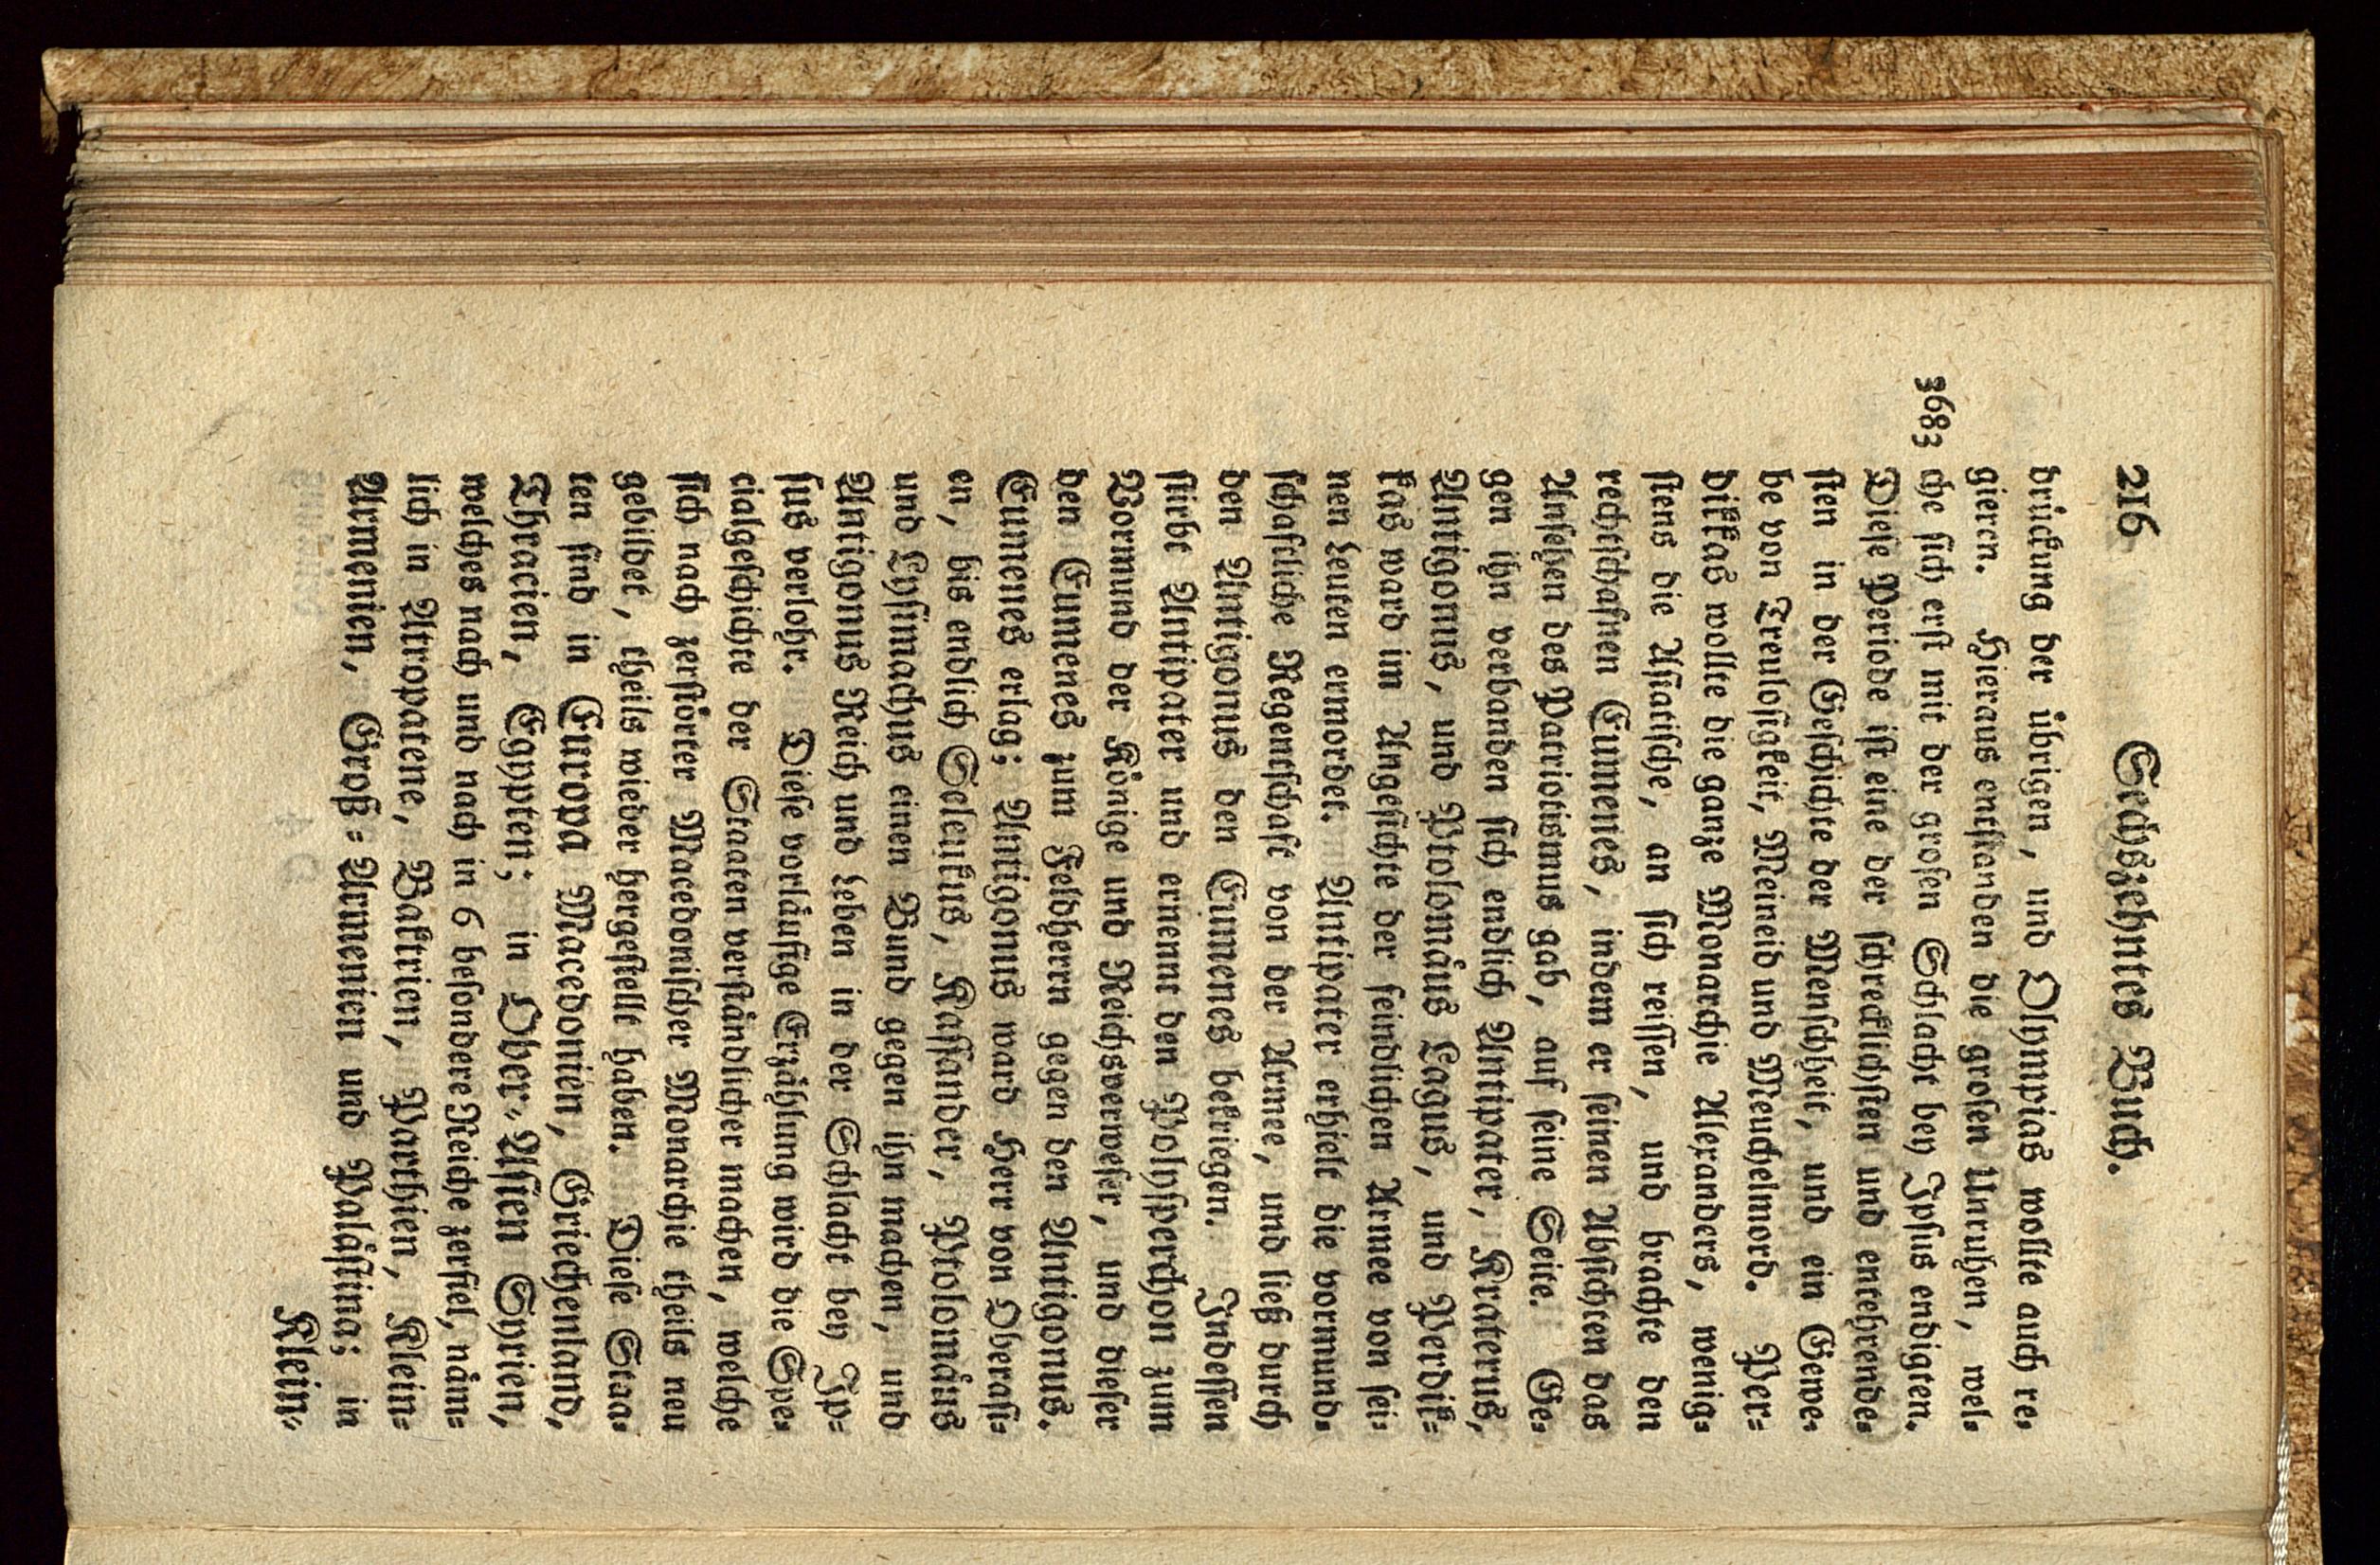 216 Sechszehntes Buch.
drückung der übrigen, und Olympias wollte auch re-
gieren. Hieraus entstanden die grosen Unruhen, wel-
3683 che sich erst mit der grosen Schlacht bey Ipsus endigten.
Diese Periode ist eine der schrecklichsten und entehrende-
sten in der Geschichte der Menschheit, und ein Gewe-
be von Treulosigkeit, Meineid und Meuchelmord. Per-
dikkas wollte die ganze Monarchie Alexanders, wenig-
stens die Asiatische, an sich reissen, und brachte den
rechtschafnen Eumenes, indem er seinen Absichten das
Ansehen des Patriotismus gab, auf seine Seite. Ge-
gen ihn verbanden sich endlich Antipater, Kraterus,
Antigonus, und Ptolomäus Lagus, und Perdik-
kas ward im Angesichte der feindlichen Armee von sei-
nen Leuten ermordet. Antipater erhielt die vormund-
schaftliche Regentschaft von der Armee, und ließ durch
den Antigonus den Eumenes bekriegen. Indessen
stirbt Antipater und ernennt den Polysperchon zum
Vormund der Könige und Reichsverweser, und dieser
den Eumenes zum Feldherrn gegen den Antigonus.
Eumenes erlag; Antigonus ward Herr von Oberasi-
en, bis endlich Seleukus, Kassander, Ptolomäus
und Lysimachus einen Bund gegen ihn machen, und
Antigonus Reich und Leben in der Schlacht bey Ip-
sus verlohr. Diese vorläufige Erzählung wird die Spe-
cialgeschichte der Staaten verständlicher machen, welche
sich nach zerstörter Macedonischer Monarchie theils neu
gebildet, theils wieder hergestellt haben. Diese Staa-
ten sind in Europa Macedonien, Griechenland,
Thracien, Egypten; in Ober-Asien Syrien,
welches nach und nach in 6 besondere Reiche zerfiel, näm-
lich in Atropatene, Baktrien, Parthien, Klein-
Armenien, Groß-Armenien und Palästina; in
Klein-